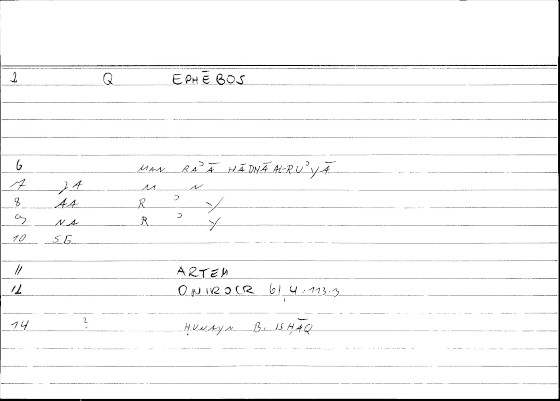 1 Q EPHĒBOS
6 MAN RAʾĀ HĀDHĀ AL-RUʾYĀ
7 JA M N
8 AA R ʾ Y
9 NA R ʾ Y
10 SE
11 ARTEM
12 ONIROCR 61,4.113.3
14 ? ḤUNAYN B. ISḤĀQ